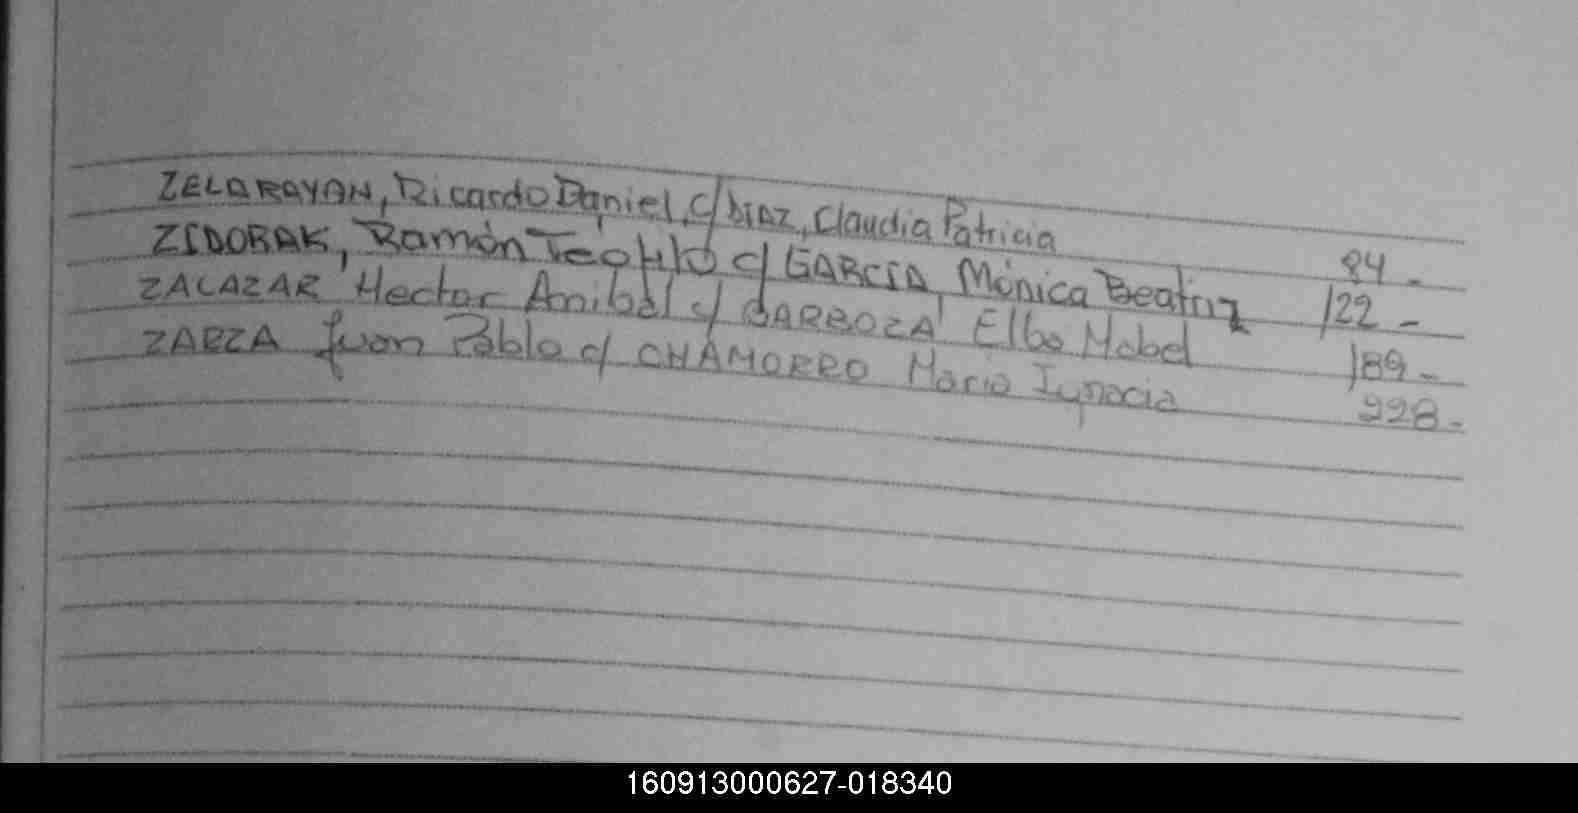 ZELARAYAN, Ricardo Daniel, c/ DIAZ, Claudia Patricia 84 -
ZIDORAK, Ramón Teofilo c/ GARCIA, Mónica Beatriz 122 -
ZALAZAR Hector Anibal c/ BARBOZA Elba Mabel 189 -
ZARZA Juan Pablo c/ CHAMORRO Maria Ignacia 228 -
160913000627-018340